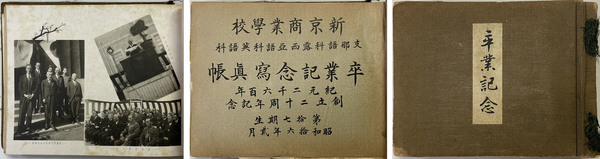 新京商業學校
支那語科露西亞語科英語科
卒業記念寫眞帳
紀元二千六百年
創立二十周年記念
第拾七期生
昭和拾六年貳月
卒業記念